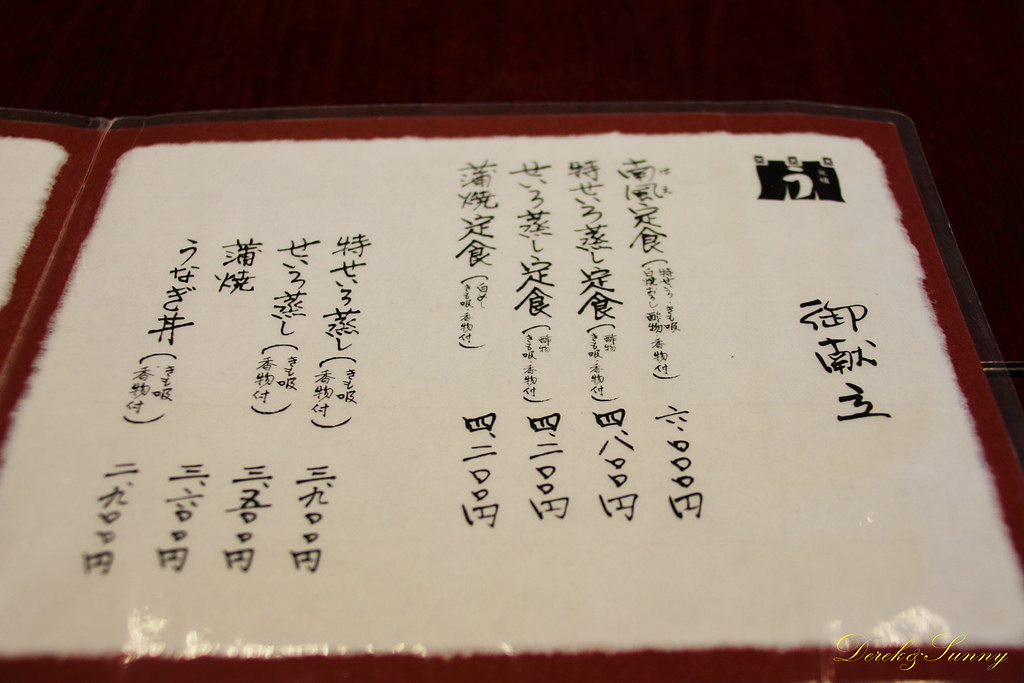 う
御献立
南風定食(特せいろ・きも吸
白焼おろし 酢物 香物付) 六、〇〇〇円
特せいろ蒸し定食(酢物
きも吸 香物付) 四、八〇〇円
せいろ蒸し定食(酢物
きも吸 香物付) 四、二〇〇円
蒲焼定食(白めし
きも吸 香物付) 四、二〇〇円
特せいろ蒸し(きも吸
香物付) 三、九〇〇円
せいろ蒸し(きも吸
香物付) 三、五〇〇円
蒲焼 三、六〇〇円
うなぎ丼(きも吸
香物付) 二、九〇〇円
Derek&Sunny